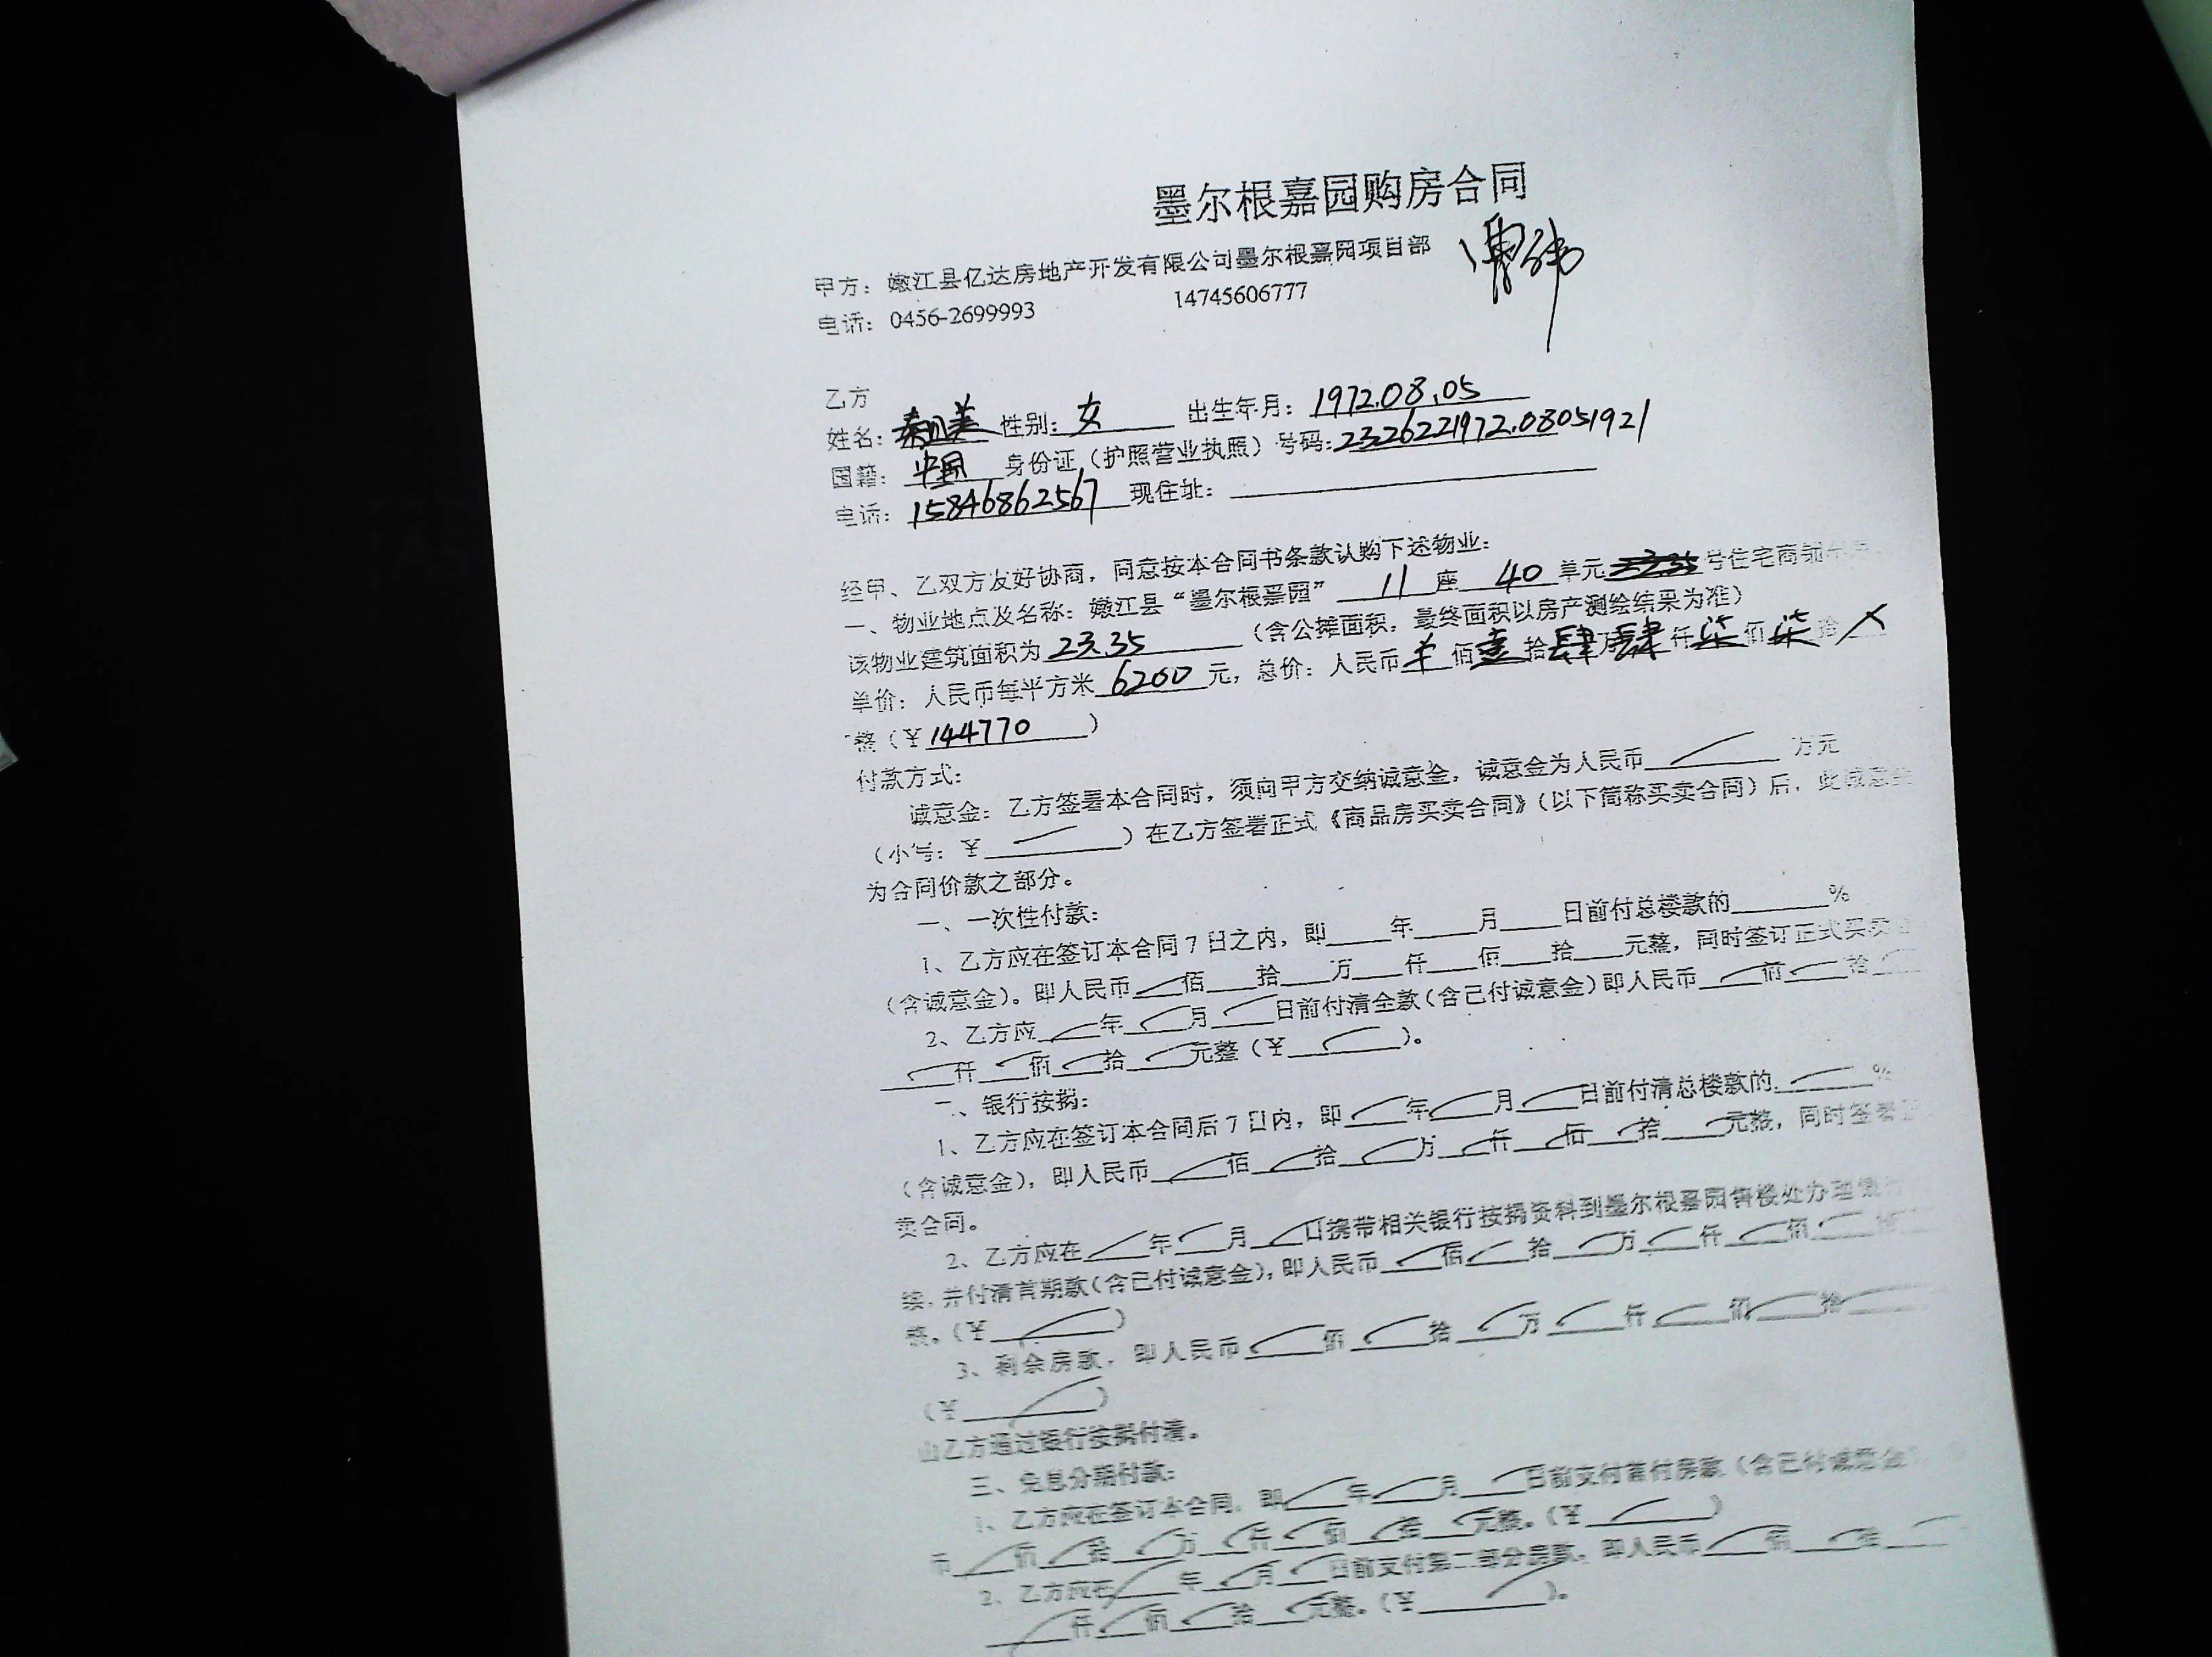 墨尔根嘉园购房合同
甲方：嫩江县亿达房地产开发有限公司墨尔根嘉园项目部
电话：0456-2699993 14745606777
乙方
姓名： 性别：女 出生年月：1972.08.05
国籍：中国 身份证（护照营业执照）号码：2326221972.08051921
电话：15846862567 现住址：
经甲、乙双方友好协商，同意按本合同书条款认购下述物业：
一、物业地点及名称：嫩江县“墨尔根嘉园” 11 座 40 单元 号住宅商铺
该物业建筑面积为 23.35 （含公摊面积，最终面积以房产测绘结果为准）
单价：人民币每平方米 6200 元，总价：人民币 佰 壹 拾 肆 万 肆 仟 柒 佰 柒 拾
整（￥144770 ）
付款方式：
诚意金：乙方签署本合同时，须向甲方交纳诚意金，诚意金为人民币 万元
（小写：￥ ）在乙方签署正式《商品房买卖合同》（以下简称买卖合同）后，此诚意
为合同价款之部分。
一、一次性付款：
1、乙方应在签订本合同7日之内，即 年 月 日前付总楼款的 %
（含诚意金）。即人民币 佰 拾 万 仟 佰 拾 元整，同时签订正式买卖
2、乙方应 年 月 日前付清全款（含已付诚意金）即人民币 佰 拾
仟 佰 拾 元整（￥ ）。
二、银行按揭：
1、乙方应在签订本合同后7日内，即 年 月 日前付清总楼款的 %
（含诚意金），即人民币 佰 拾 万 仟 佰 拾 元整，同时签署
卖合同。
2、乙方应在 年 月 日携带相关银行按揭资料到墨尔根嘉园售楼处办理银行
续，并付清首期款（含已付诚意金），即人民币 佰 拾 万 仟 佰
整。（￥ ）
3、剩余房款，即人民币 佰 拾 万 仟 佰 拾
（￥ ）
由乙方通过银行按揭付清。
三、免息分期付款：
1、乙方应在签订本合同，即 年 月 日前支付首付房款（含已付诚意金
币 佰 拾 万 仟 佰 拾 元整。（￥ ）
2、乙方应在 年 月 日前支付第二部分房款，即人民币 佰 拾
仟 佰 拾 元整。（￥ ）。